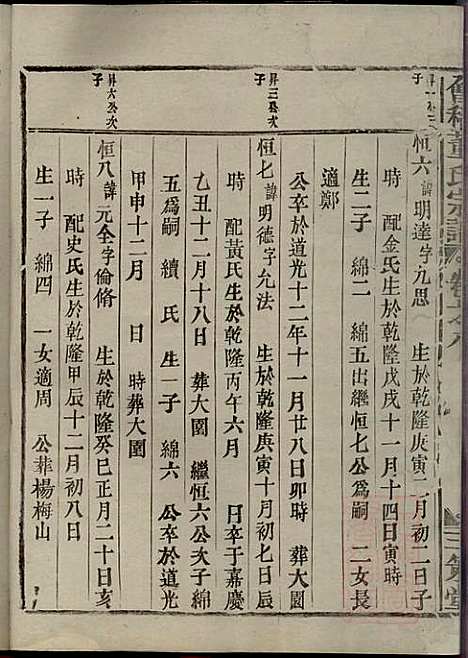 會稽董氏宗譜
三策堂
恒六諱明達字九思 生於乾隆庚寅二月初二日子
時 配金氏生於乾隆戊戌十一月十四日寅時
生二子 綿二 綿五出繼恒七公為嗣 二女長
適鄭
公卒於道光十二年十一月廿八日卯時 葬大園
昇三公次子
恒七諱明德字允法 生於乾隆庚寅十月初七日辰
時 配黃氏生於乾隆丙午六月 日卒于嘉慶
乙丑十二月十八日 葬大園 繼恒六公次子綿
五為嗣 續 氏生一子 綿六 公卒於道光
甲申十二月 日 時葬大園
昇六公次子
恒八諱元全字倫脩 生於乾隆癸巳正月二十日亥
時 配史氏生於乾隆甲辰十二月初八日
生一子 綿四 一女適周 公葬楊梅山